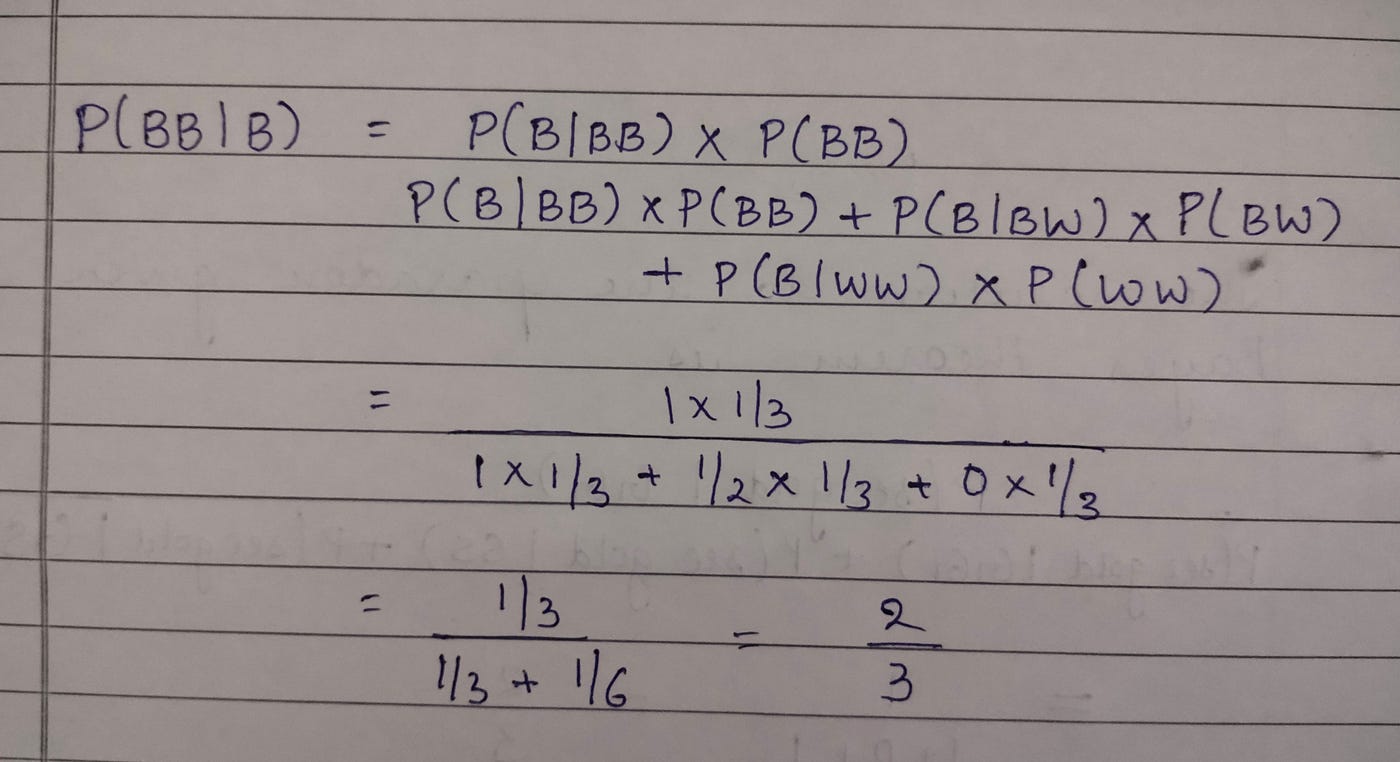 P(BB|B) = P(B|BB) x P(BB)
P(B|BB) x P(BB) + P(B|BW) x P(BW)
+ P(B|WW) x P(WW)
= 1 x 1/3
1 x 1/3 + 1/2 x 1/3 + 0 x 1/3
= 1/3 = 2
1/3 + 1/6 3